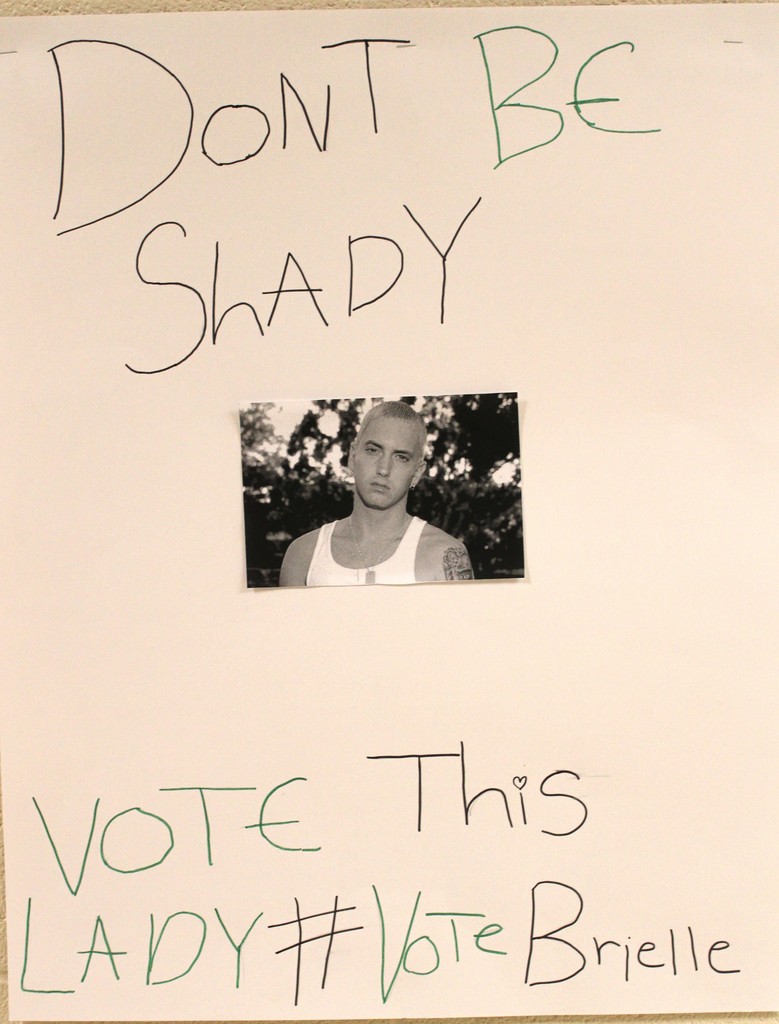 DONT BE
ShADY
VOTE This
LADY #VoTe Brielle